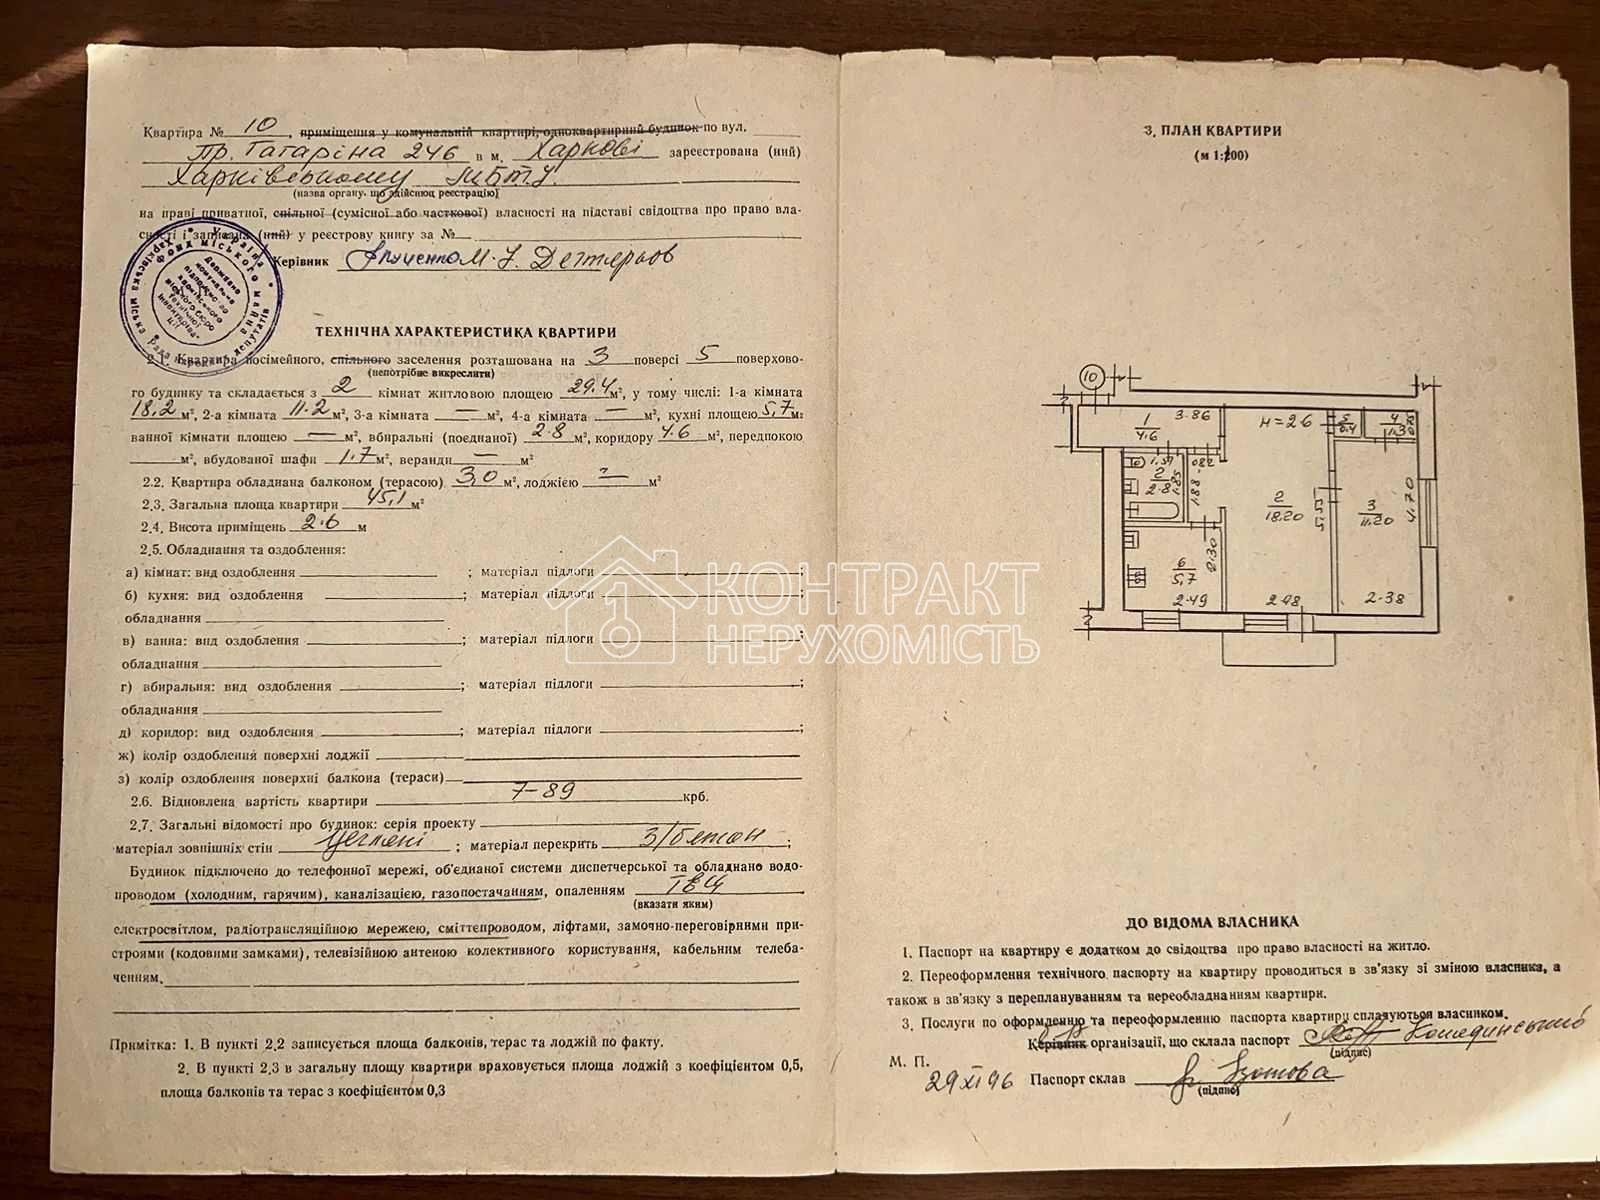 Квартира № 10, приміщення у комунальній квартирі, одноквартирний будинок по вул.
Пр. Гагаріна 246 в м. Харкові зареєстрована (ний)
Харківському МБТІ.
(назва органу, що здійснює реєстрацію)
на праві приватної, спільної (сумісної або часткової) власності на підставі свідоцтва про право вла-
сності і записана (ний) у реєстрову книгу за №
Керівник
ТЕХНІЧНА ХАРАКТЕРИСТИКА КВАРТИРИ
2.1. Квартира посімейного, спільного заселення розташована на 3 поверсі 5 поверхово-
(непотрібне викреслити)
го будинку та складається з 2 кімнат житловою площею 29.4 м², у тому числі: 1-а кімната
18,2 м², 2-а кімната 11.2 м², 3-а кімната — м², 4-а кімната — м², кухні площею 5,7 м²
ванної кімнати площею — м², вбиральні (поєднаної) 2.8 м², коридору 4.6 м², передпокою
м², вбудованої шафи 1.7 м², веранди — м²
2.2. Квартира обладнана балконом (терасою) 3,0 м², лоджією — м²
2.3. Загальна площа квартири 45,1 м²
2.4. Висота приміщень 2.6 м
2.5. Обладнання та оздоблення:
а) кімнат: вид оздоблення ; матеріал підлоги
б) кухня: вид оздоблення ; матеріал підлоги ;
обладнання
в) ванна: вид оздоблення ; матеріал підлоги ;
обладнання
г) вбиральня: вид оздоблення ; матеріал підлоги ;
обладнання
д) коридор: вид оздоблення ; матеріал підлоги ;
ж) колір оздоблення поверхні лоджії
з) колір оздоблення поверхні балкона (тераси)
2.6. Відновлена вартість квартири 7-89 крб.
2.7. Загальні відомості про будинок: серія проекту
матеріал зовнішніх стін цегляні ; матеріал перекрить З/бетон ;
Будинок підключено до телефонної мережі, об'єднаної системи диспетчерської та обладнано водо-
проводом (холодним, гарячим), каналізацією, газопостачанням, опаленням ТЕЦ
(вказати яким)
електросвітлом, радіотрансляційною мережею, сміттепроводом, ліфтами, замочно-переговірними при-
строями (кодовими замками), телевізійною антеною колективного користування, кабельним телеба-
ченням.
Примітка: 1. В пункті 2.2 записується площа балконів, терас та лоджій по факту.
2. В пункті 2.3 в загальну площу квартири враховується площа лоджій з коефіцієнтом 0,5,
площа балконів та терас з коефіцієнтом 0,3
3. ПЛАН КВАРТИРИ
(м 1:200)
10
1
4.6
3.86
н=2.6
5
0.4
4
1.3
0.75
1.57
0.82
2
2.8
1.85
1.88
2
18.20
5.55
3
11.20
4.70
6
5,7
2.30
2.49
2.98
2.38
КОНТРАКТ
НЕРУХОМІСТЬ
ДО ВІДОМА ВЛАСНИКА
1. Паспорт на квартиру є додатком до свідоцтва про право власності на житло.
2. Переоформлення технічного паспорту на квартиру проводиться в зв'язку зі зміною власника, а
також в зв'язку з переплануванням та переобладнанням квартири.
3. Послуги по оформленню та переоформленню паспорта квартири сплачуються власником.
Керівник організації, що склала паспорт
(підпис)
М. П.
29 XI 96 Паспорт склав
(підпис)